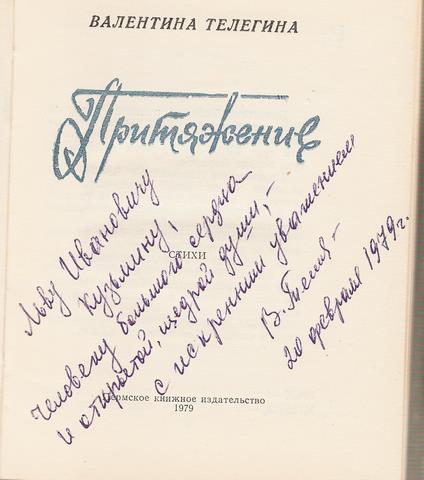 ВАЛЕНТИНА ТЕЛЕГИНА
Притяжение
Льву Ивановичу
Кузьмину,
человеку большого сердца
и открытой, щедрой души,–
с искренним уважением
В. Телег–
20 февраля 1979г.
СТИХИ
Пермское книжное издательство
1979